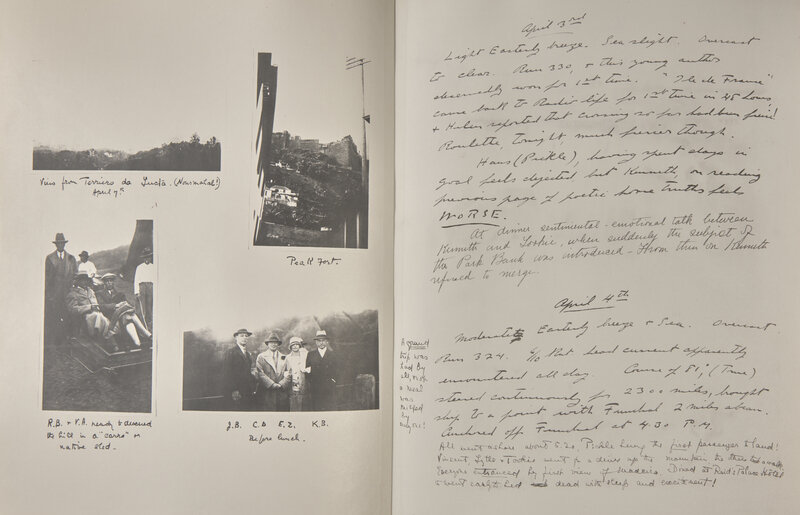 View from Terriero da Lucta. (Hans mahal!)
April 7th
Peak Fort.
R.B. & V.A. ready to descend
the hill in a "carro" or
native sled.
J.B. C.D E.Z. K.B.
Before lunch.
April 3rd
Light Easterly breeze. Sea slight. Overcast
to clear. Run 330, & this young author
deservedly won for 1st time. "Ile de France"
came back to Radio life for 1st time in 48 hours,
& Hubin reported that crossing so far had been fierce!
Roulette, tonight, much fiercer though.
Hans (Prickle), having spent days in
goal feels dejected but Kermith, on reading
previous page of poetic home truths feels
WORSE.
At dinner sentimental-emotional talk between
Kermith and Tookie, when suddenly the subject of
the Park Bank was introduced - From then on Kermith
refused to merge.
April 4th
Moderate Easterly breeze & Sea. Overcast.
Run 324. Head current apparently
encountered all day. Course of 81° (True)
steered continuously for 2300 miles, brought
ship to a point with Funchal 2 miles abeam.
Anchored off Funchal at 4.30 P.M.
A grand
trip was
had by
all, not
a meal
was
by
anyone!
All went ashore about 5.30, Prickle being the first passenger to land!
Vincent, Lytle & Tookie went for a drive up the mountain
Everyone entranced by first view of Madeira. Dined at Reid's Palace Hotel
& went early to bed dead with sleep and excitement!